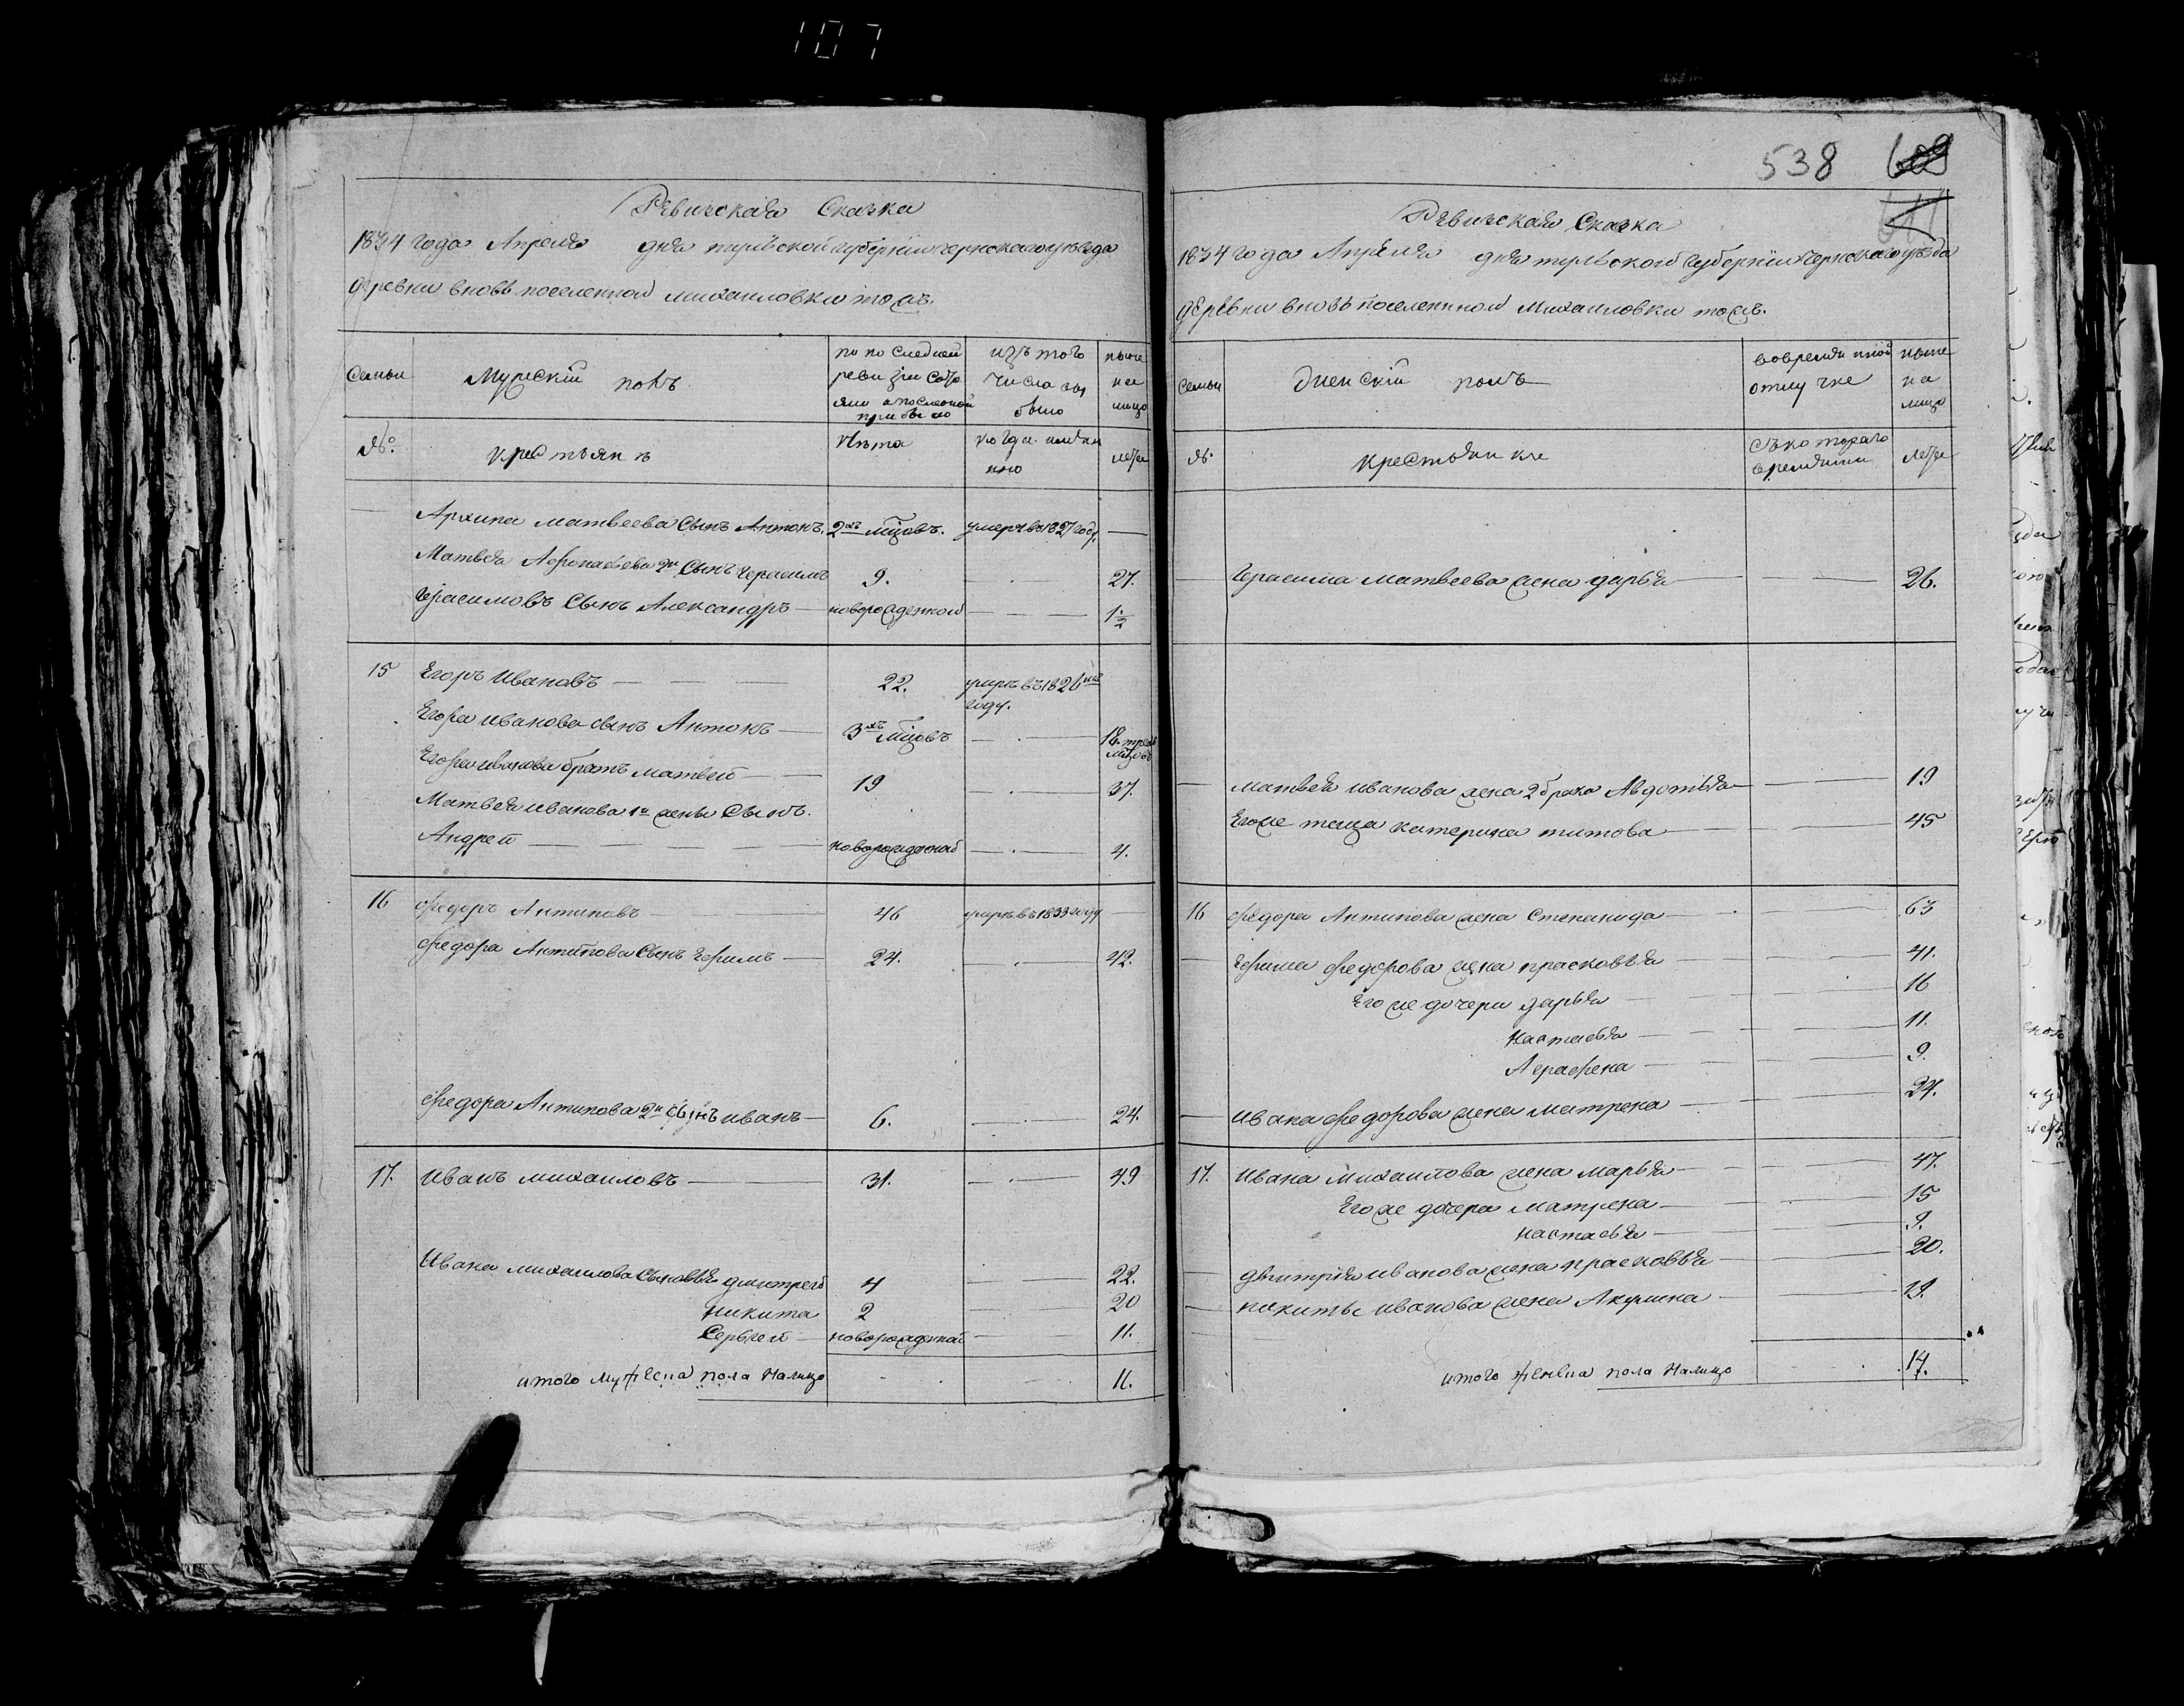 107
Ревизская Сказка
1834 года Апреля дня тульской губернии чернскаго уезда
деревни вновь поселенной михаиловки тожъ.
Семьи
Мужескiй полъ
по последней ревизiи состояло и после оной прибыло
изъ того числа выбыло
ныне на лицо
№.
крестьянъ
лѣта
когда имянно
лета
Архипа матвеева Сынъ Антонъ. 2хъ мцовъ. умеръ въ 1827 году. —
Матвея Афонасьева 2й Сынъ Герасимъ 9. — 27.
Герасимовъ Сынъ Александръ — новорожденной — 1 1/2
15 Егоръ Ивановъ — 22. умеръ въ 1826мъ году.
Егора иванова сынъ Антонъ — 3хъ мцовъ — 18. трехъ мцовъ
Егора иванова братъ матвей — 19 — 37.
Матвея иванова 1й жены Сынъ.
Андрей — новорожденной — 4.
16 Федоръ Антиповъ — 46 умеръ въ 1833 году —
Федора Антипова Сынъ Ефимъ — 24. — 42.
Федора Антипова 2й сынъ иванъ — 6. — 24.
17. Иванъ михаиловъ — 31. — 49
Ивана михаилова Сыновья дмитрей 4 — 22.
никита 2 — 20
Сергей — новорожденной — 11.
итого мужеска пола налицо 11.
538 609
Ревизская Сказка
1834 года Апреля дня тульской губернии чернскаго уезда
деревни вновь поселенной Михаиловки тожъ.
Семьи
женскiй полъ
во временной отлучке
ныне на лицо
№.
крестьянке
съ котораго времяни
лета
— Герасима матвеева жена дарья — 26.
— матвея иванова жена 2 брака Авдотья — 19
Егоже теща катерина титова — 45
16 Федора Антипова жена Степанида — 63
— Ефима Федорова жена прасковья — 41.
Егоже дочери дарья — 16
настасья — 11.
Аграфена — 9.
— ивана Федорова жена матрена — 24.
17. Ивана михаилова жена марья — 47.
Егоже дочери матрена — 15
настасья — 9.
— дмитрия иванова жена прасковья — 20.
— никиты иванова жена Акулина — 19.
итого женска пола налицо 14.